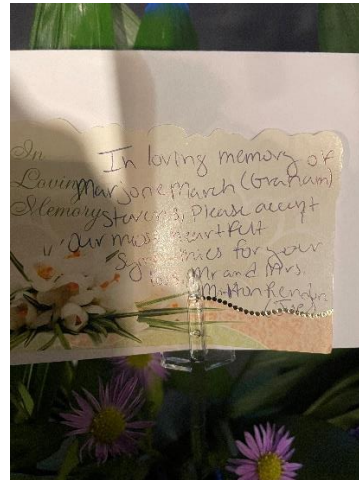 In
Loving
Memory
In loving memory of
Marjorie March (Graham)
Stavens. Please accept
our most heartfelt
for your
Mr and Mrs.
Milton